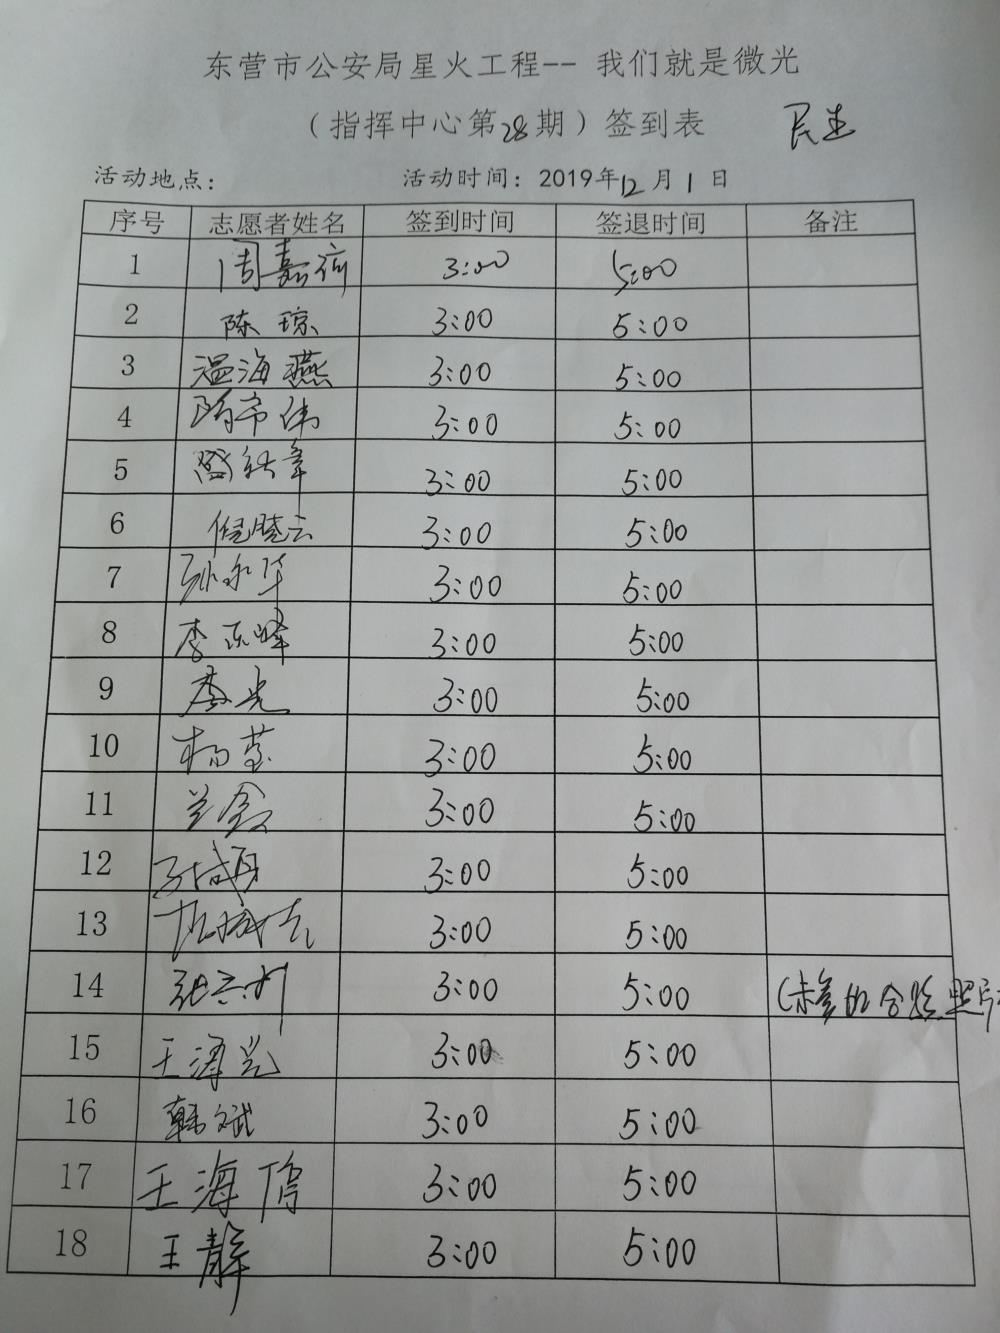 东营市公安局星火工程-- 我们就是微光
(指挥中心第28期)签到表
活动地点: 活动时间: 2019年12月1日
序号 志愿者姓名 签到时间 签退时间 备注
1 周嘉 3:00 5:00
2 陈琼 3:00 5:00
3 温海燕 3:00 5:00
4 隋希伟 3:00 5:00
5 盛 3:00 5:00
6 倪晓云 3:00 5:00
7 孙永华 3:00 5:00
8 李东峰 3:00 5:00
9 李光 3:00 5:00
10 杨莹 3:00 5:00
11 兰鑫 3:00 5:00
12 3:00 5:00
13 3:00 5:00
14 张 3:00 5:00 (未参加合影照片
15 王海光 3:00 5:00
16 韩斌 3:00 5:00
17 王海 3:00 5:00
18 王静 3:00 5:00